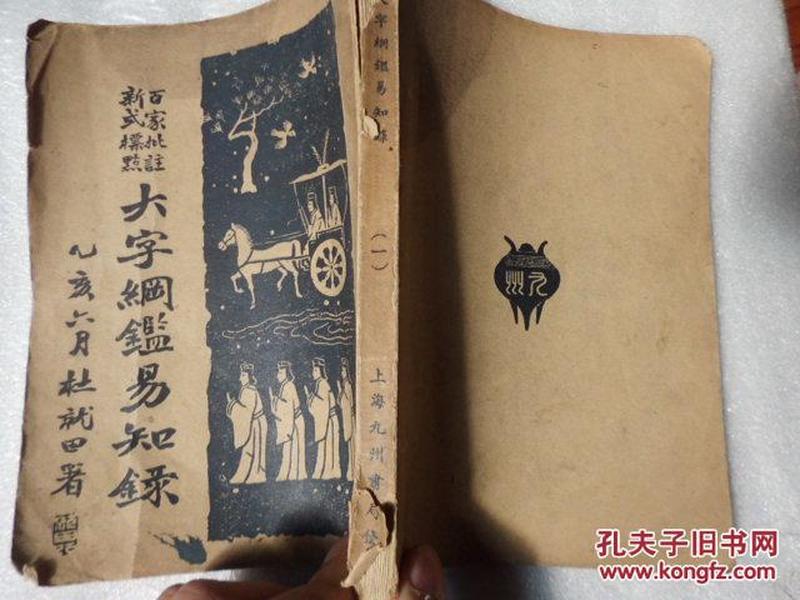 百家批註
新式標點
大字綱鑑易知錄
乙亥六月杜就田署
大字綱鑑易知錄
(一)
上海九州書局
九州
孔夫子旧书网
www.kongfz.com